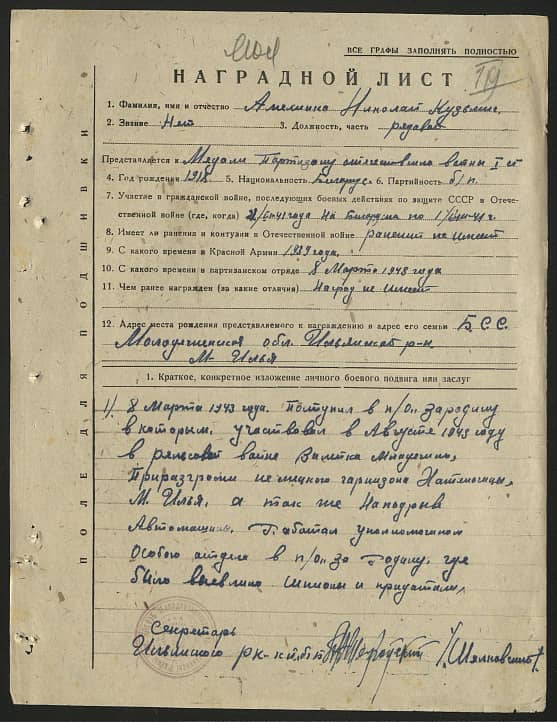 ВСЕ ГРАФЫ ЗАПОЛНЯТЬ ПОЛНОСТЬЮ
НАГРАДНОЙ ЛИСТ
1. Фамилия, имя и отчество Николай Кузьмич
2. Звание Нет 3. Должность, часть рядовой
Представляется к Медали Партизану отечествино войны I ст
4. Год рождения 1918 5. Национальность Белорус 6. Партийность б/п.
7. Участие в гражданской войне, последующих боевых действиях по защите СССР в Отече-
ственной войне (где, когда)
8. Имеет ли ранения и контузии в Отечественной войне ранений не имеет
9. С какого времени в Красной Армии 1939 года.
10. С какого времени в партизанском отряде 8 Марта 1943 года
11. Чем ранее награжден (за какие отличия) Наград не имеет
12. Адрес места рождения представляемого к награждению и адрес его семьи Б.С.С.
обл. Ильянский р-н
М Илья
1. Краткое, конкретное изложение личного боевого подвига или заслуг
1). 8 Марта 1943 года. Поступил в п/о. за родину
в котором. участвовал в Августе 1943 году
в рельсовой войне
При разгроми немецкого гарнизона
М. Илья, а так же На подрыв
Автомашины. Работал уполномоченом
Особого отдела в п/о. за Родину. где
было выявлино шпионы и
Секретарь
Ильянского рк-кп.б.б
ПОЛЕ ДЛЯ ПОДШИВКИ